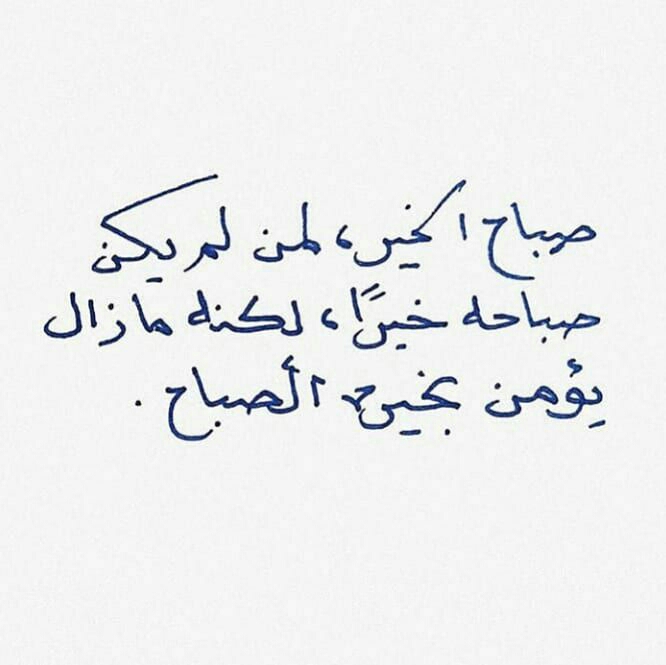 صباح الخير، لمن لم يكن
صباحه خيرًا، لكنه مازال
يؤمن بخير الصباح .